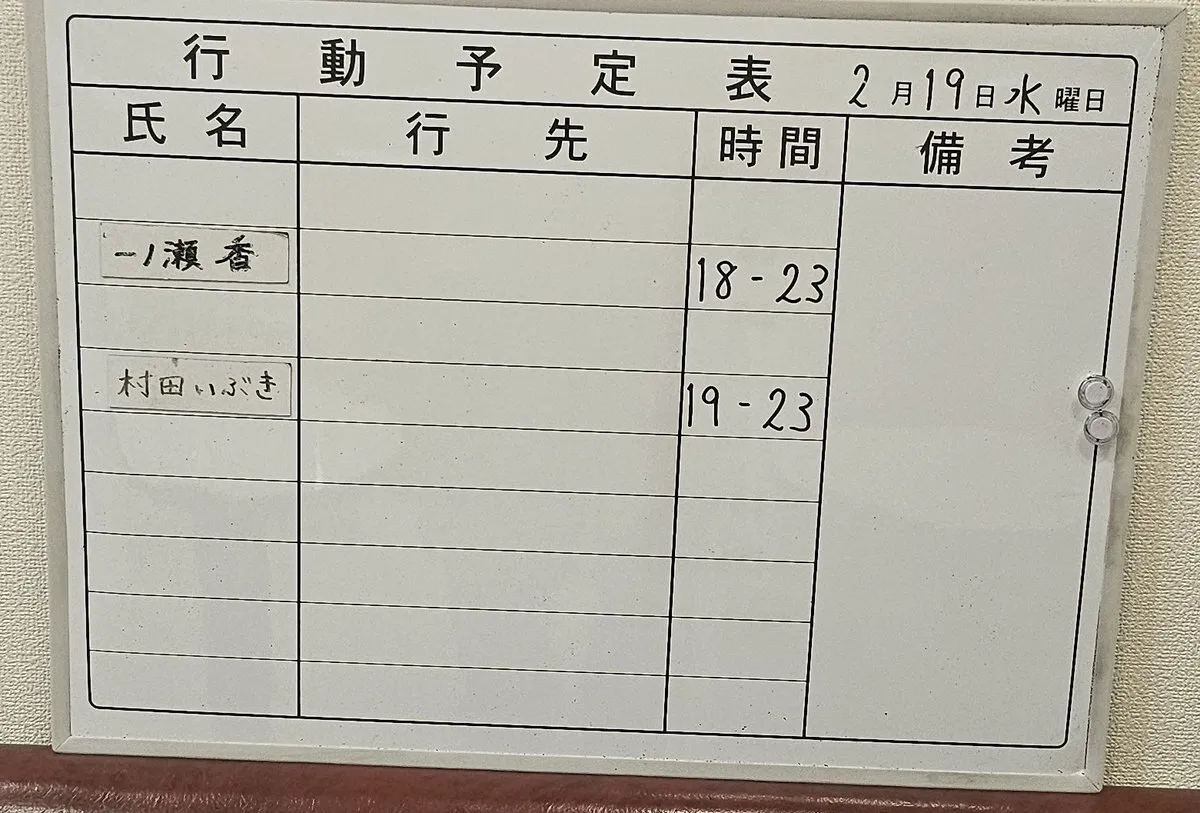 行動予定表 2月19日水曜日
氏名 行先 時間 備考
一ノ瀬 香 18-23
村田いぶき 19-23